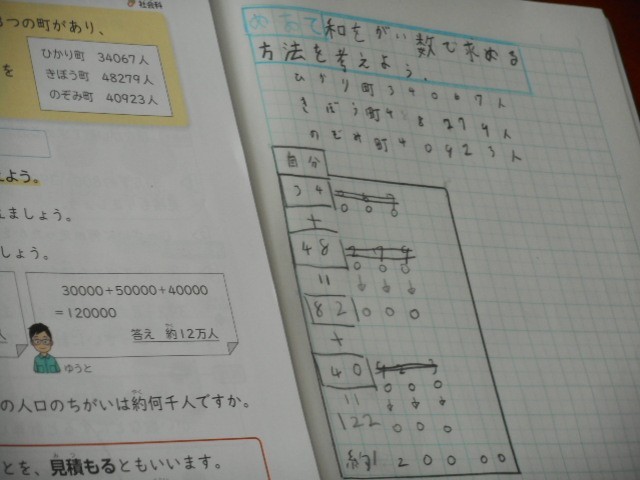 社会科
つの町があり、
ひかり町 34067人
きぼう町 48279人
のぞみ町 40923人
を
えよう。
えましょう。
しょう。
30000+50000+40000
=120000
答え 約12万人
ゆうと
の人口のちがいは約何千人ですか。
とを、見積もるともいいます。
めあて 和をがい数で求める
方法を考えよう。
ひかり町34067人
きぼう町48279人
のぞみ町40923人
自分
34
000
+
48
000
=
82000
+
40
000
=
122000
約120000